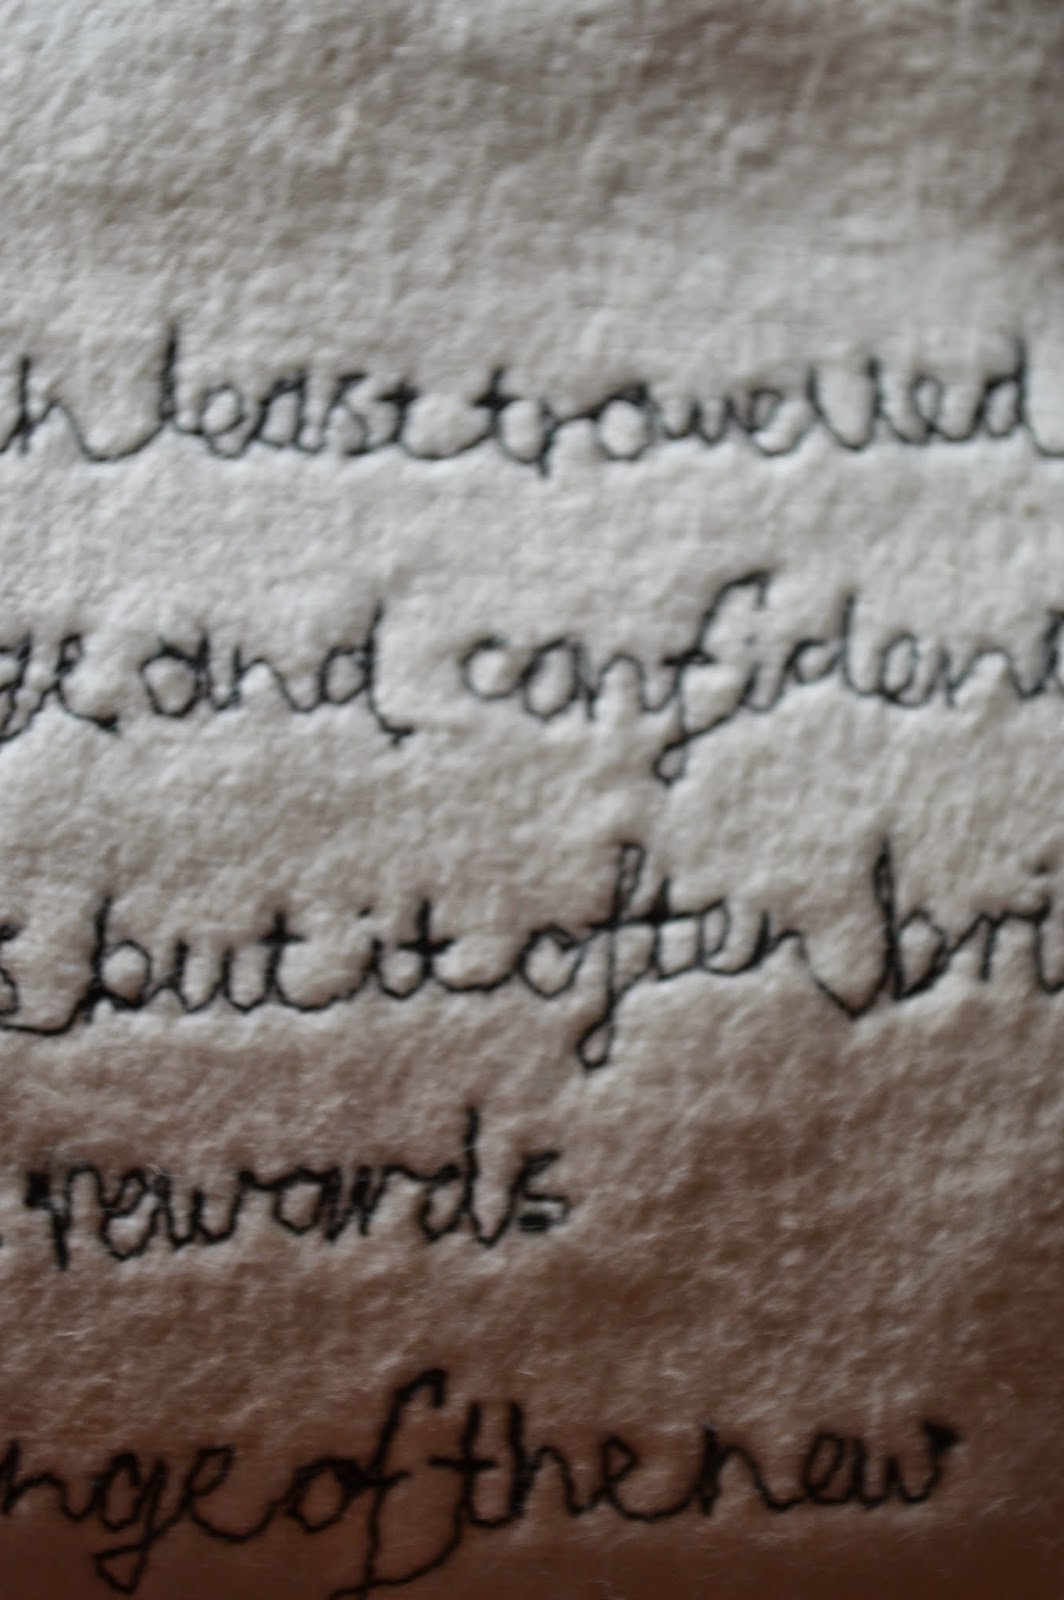 h least travelled
ge and confiden
s but it often bri
rewards
nge of the new